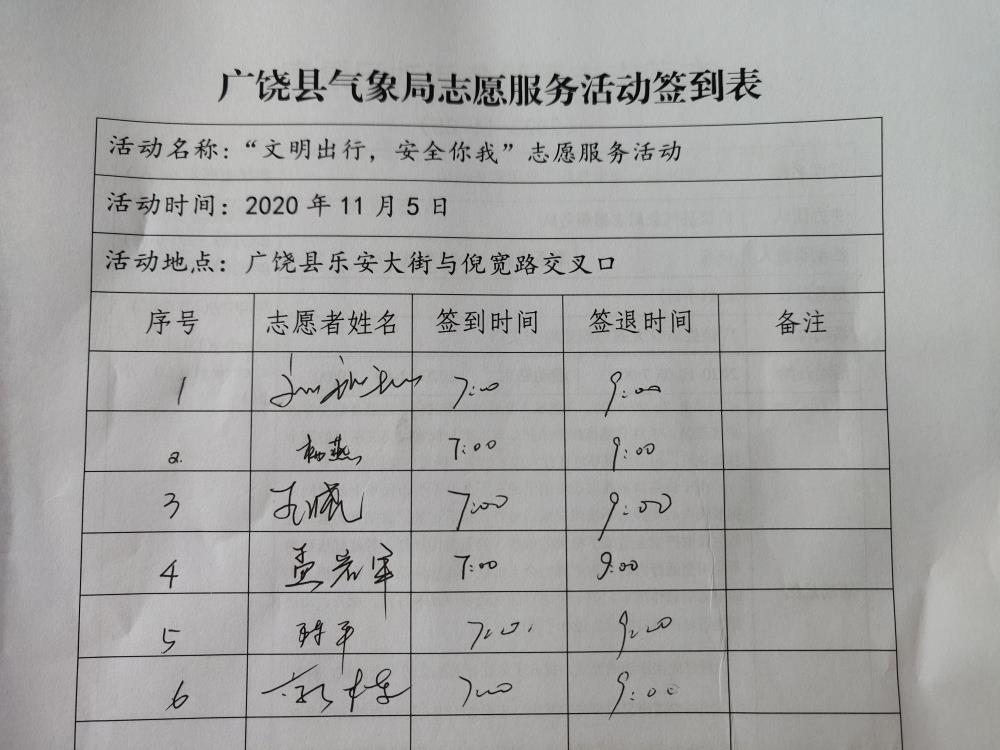 广饶县气象局志愿服务活动签到表
活动名称：“文明出行，安全你我”志愿服务活动
活动时间：2020 年 11 月 5 日
活动地点：广饶县乐安大街与倪宽路交叉口
序号 志愿者姓名 签到时间 签退时间 备注
1 7:00 9:00
2. 杨燕 7:00 9:00
3 7:00 9:00
4 孟岩军 7:00 9:00
5 7:00 9:00
6 7:00 9:00